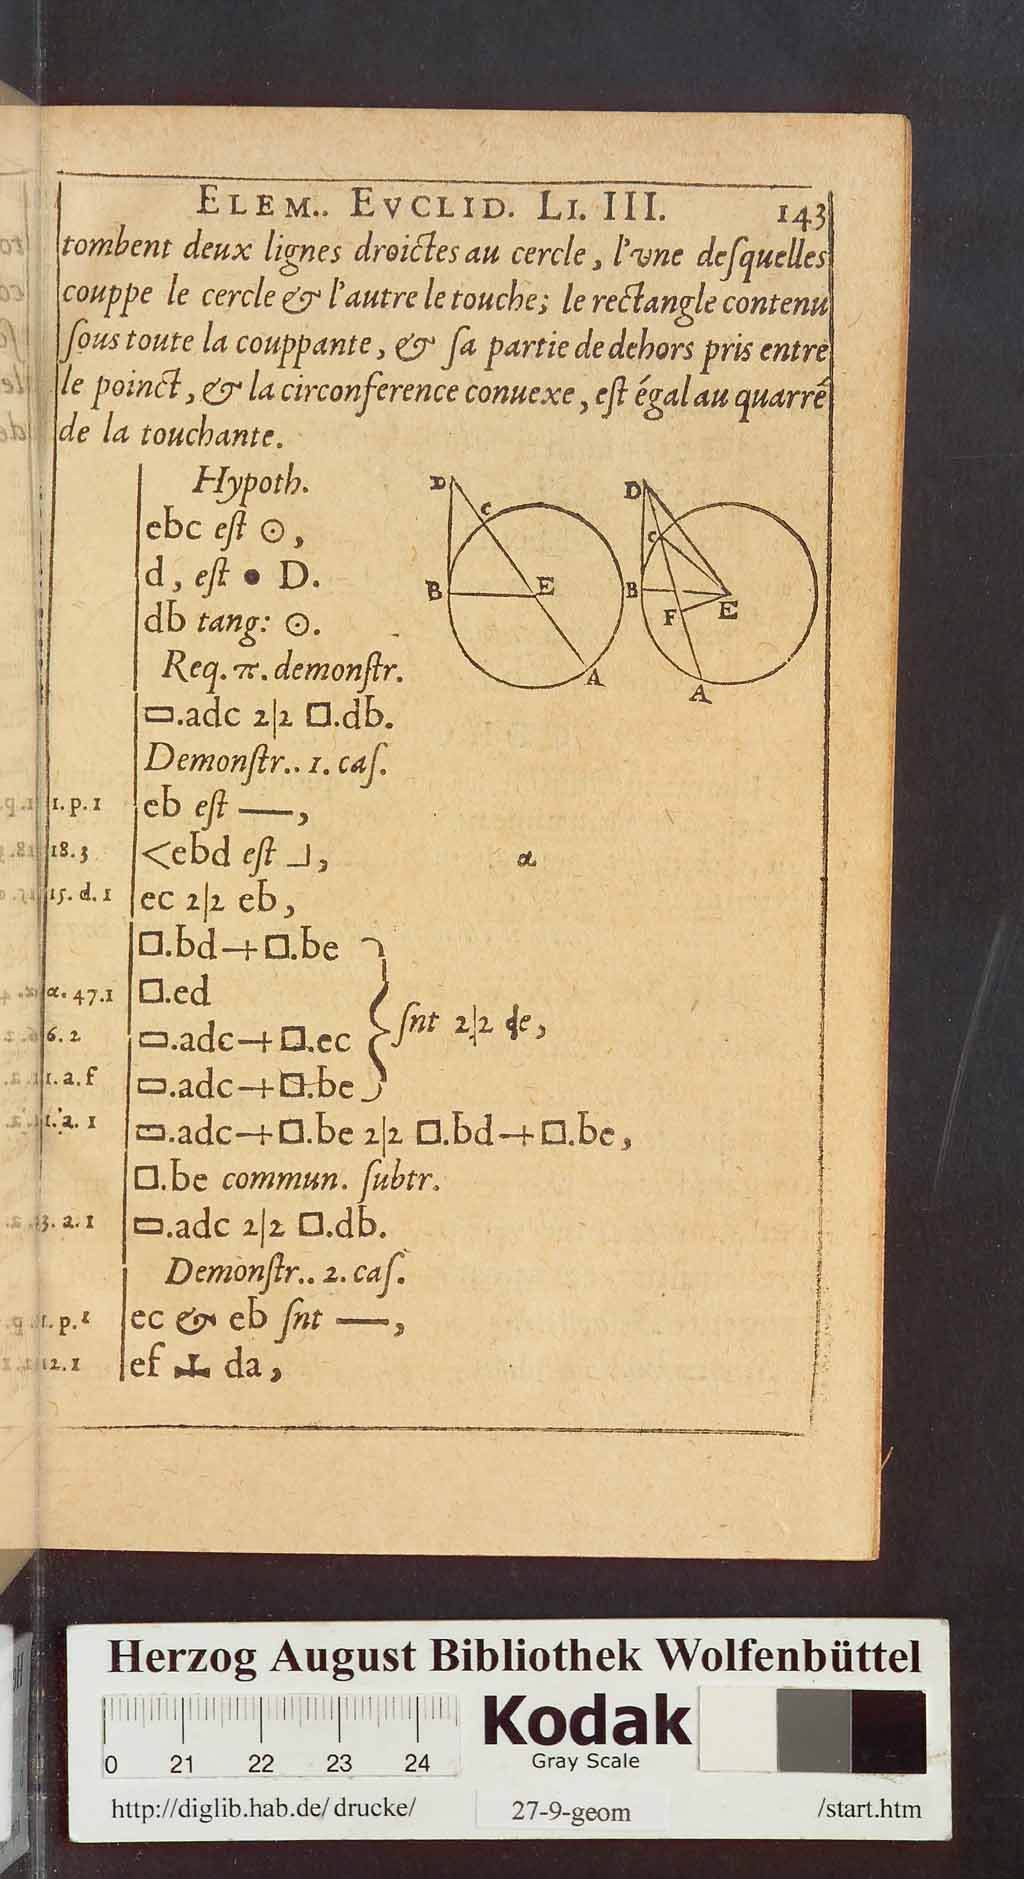 ELEM.. EVCLID. LI. III. 143
tombent deux lignes droictes au cercle, l'vne deſquelles
couppe le cercle & l'autre le touche; le rectangle contenu
ſous toute la couppante, & ſa partie de dehors pris entre
le poinct, & la circonference conuexe, eſt égal au quarré
de la touchante.
Hypoth.
ebc eſt ⊙,
d, eſt • D.
db tang: ⊙.
Req. π. demonſtr.
▭.adc 2|2 □.db.
Demonſtr.. 1. caſ.
1. p. 1 eb eſt —,
18. 3 <ebd eſt ┘, α
15. d. 1 ec 2|2 eb,
□.bd+□.be
α. 47.1 □.ed
6. 2 ▭.adc+□.ec ſnt 2|2 de,
1. a. f ▭.adc+□.be
1. a. 1 ▭.adc+□.be 2|2 □.bd+□.be,
□.be commun. ſubtr.
3. a. 1 ▭.adc 2|2 □.db.
Demonſtr.. 2. caſ.
1. p. 1 ec & eb ſnt —,
12. 1 ef ⊥ da,
D C B E A
D C B F E A
Herzog August Bibliothek Wolfenbüttel
0 21 22 23 24
Kodak
Gray Scale
http://diglib.hab.de/drucke/ 27-9-geom /start.htm